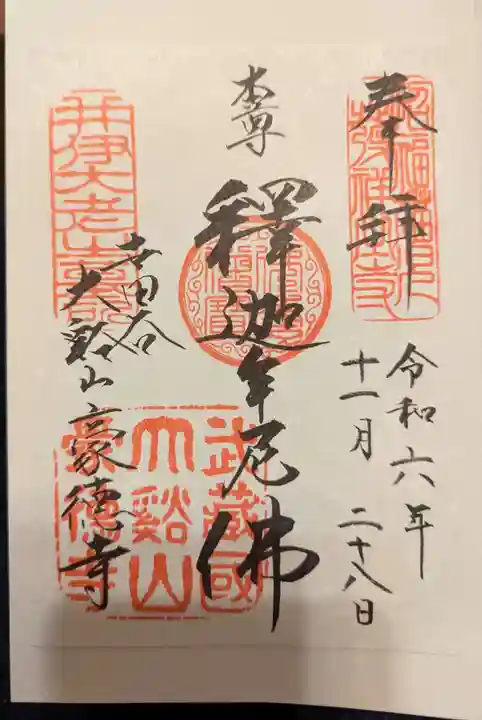 奉拝
令和六年
十一月 二十八日
本尊
釋迦牟尼佛
世田谷
大谿山豪德寺
招福猫児発祥之寺
井伊大老墓所
武蔵國
大谿山
豪德寺